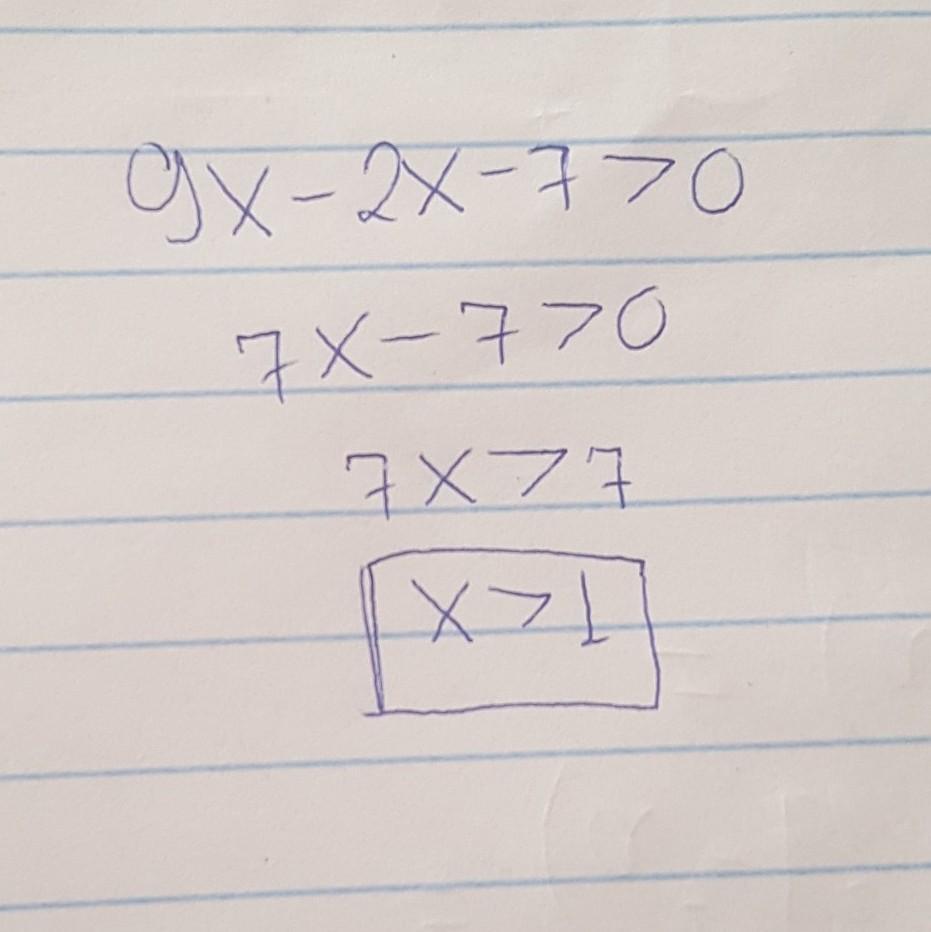 9x-2x-7>0
7x-7>0
7x>7
x>1